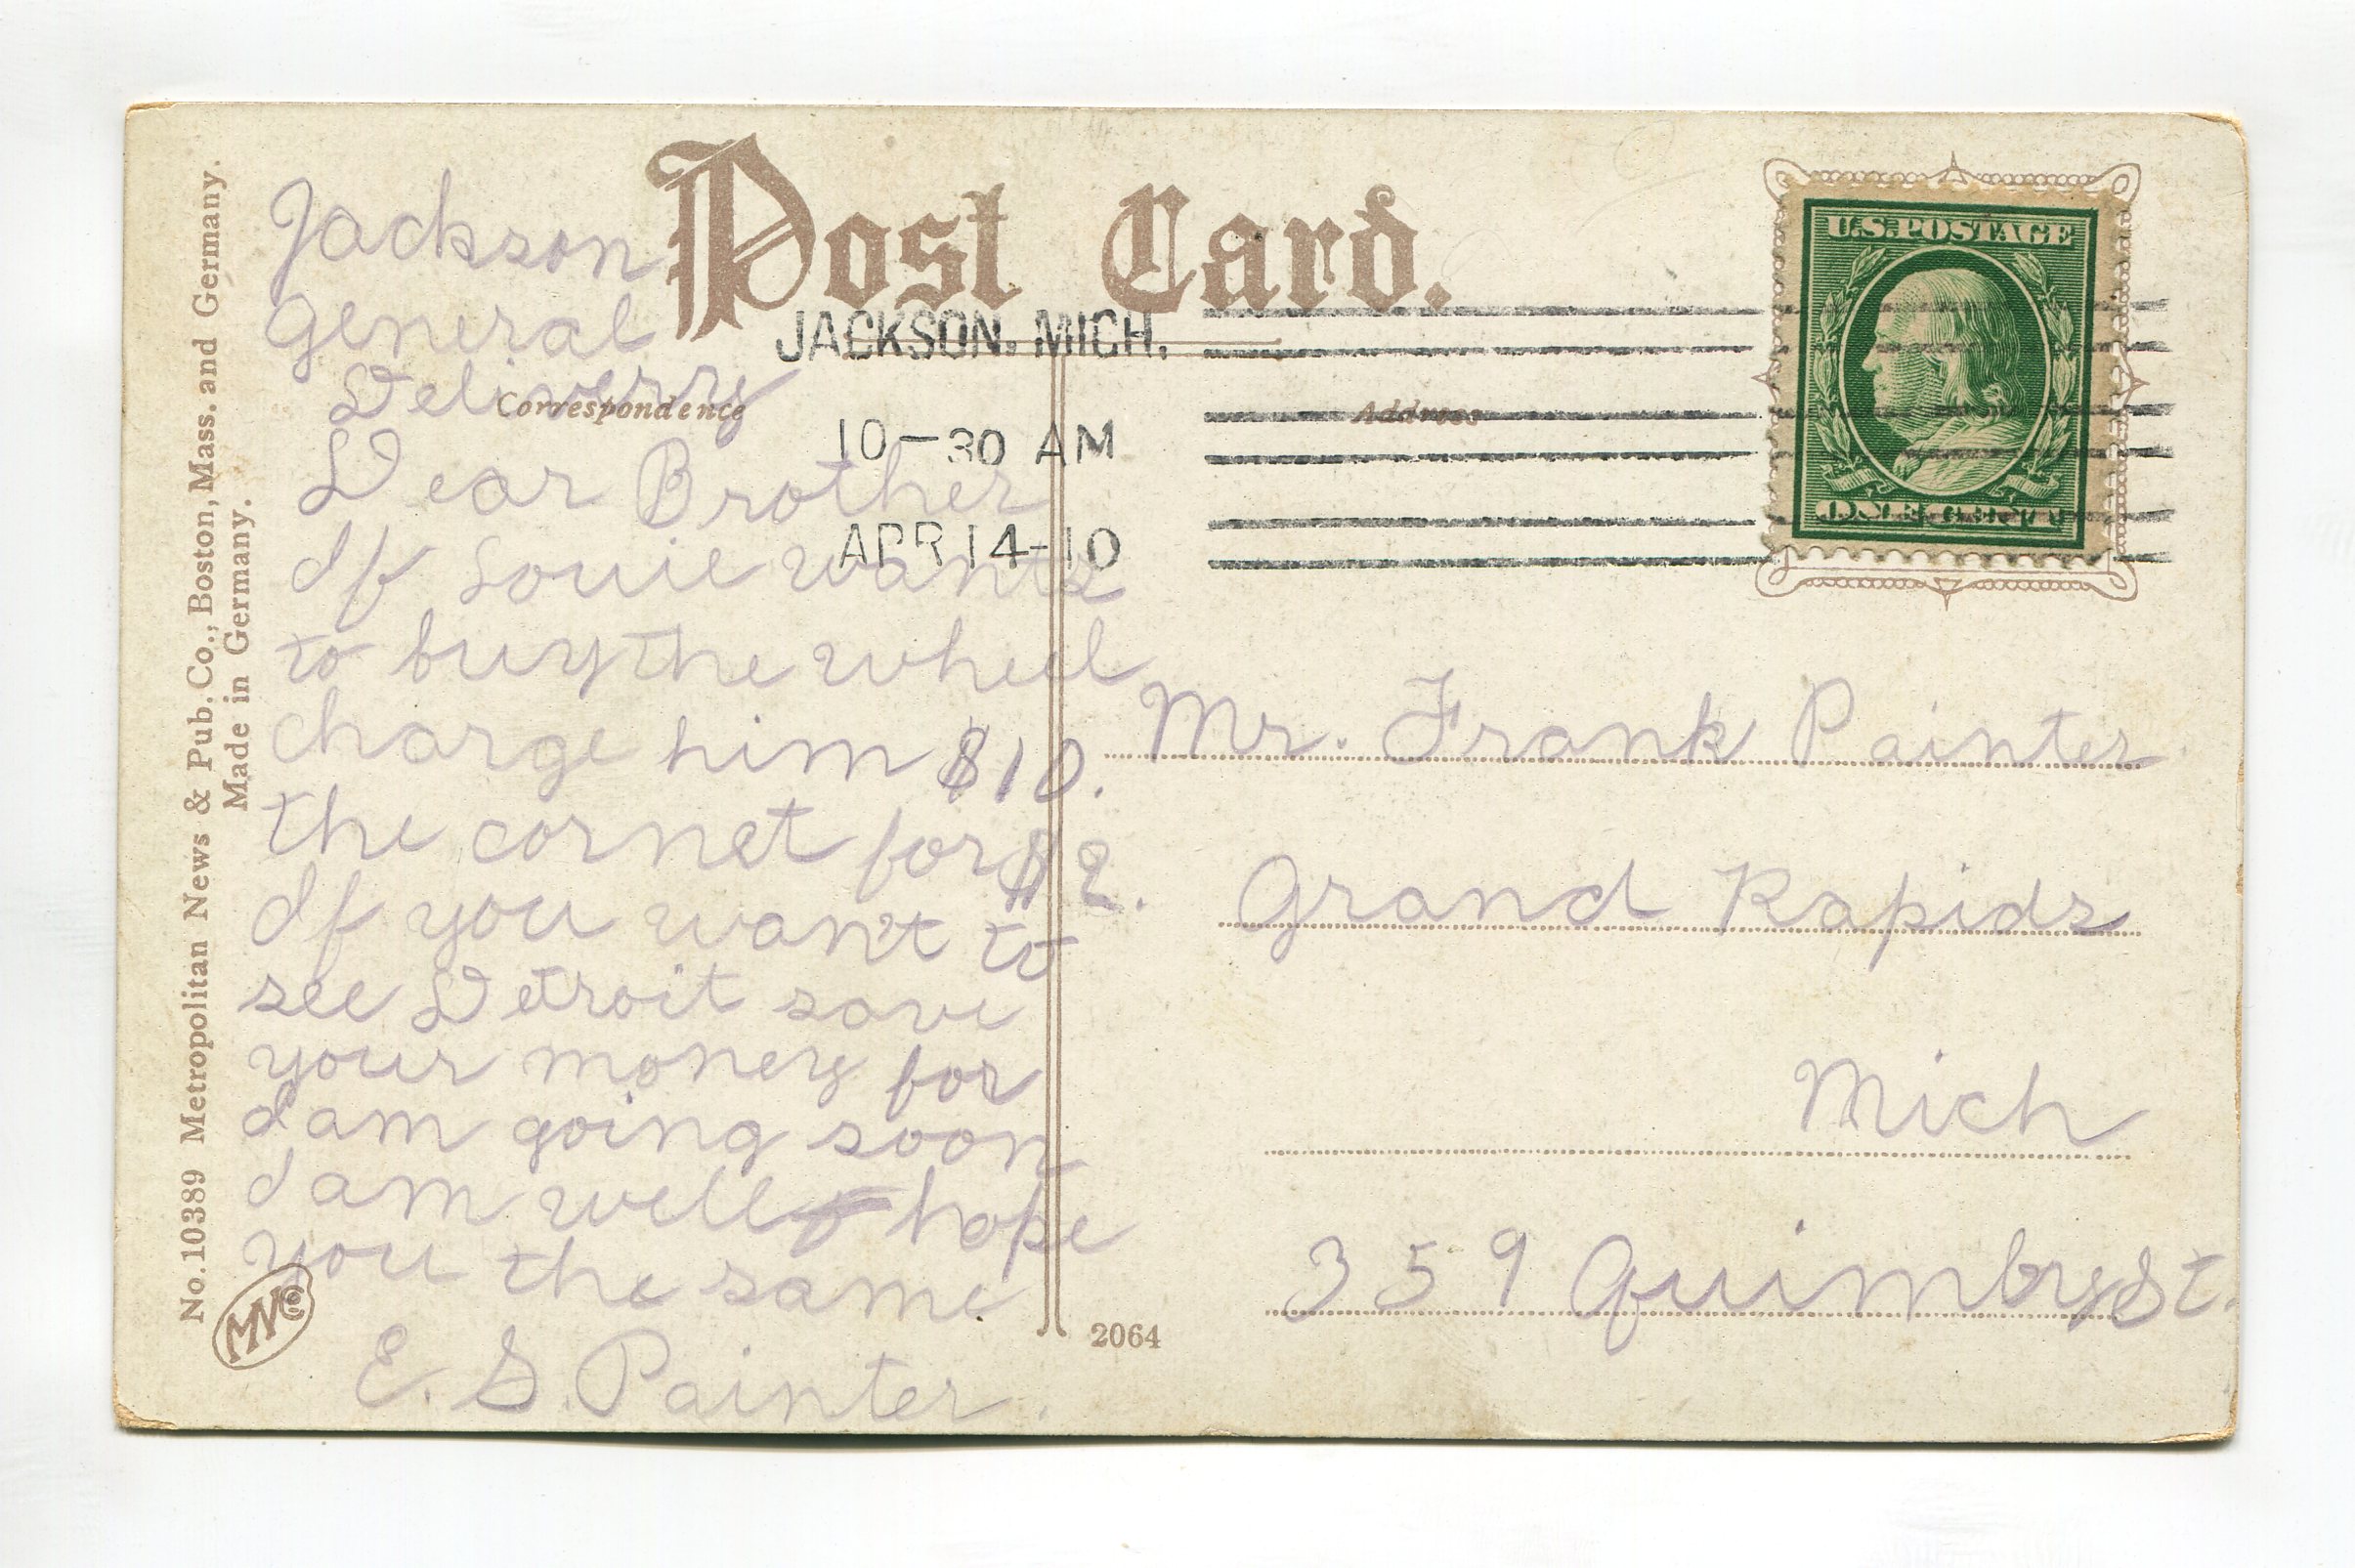 Post Card.
JACKSON. MICH.
10-30 AM
APR 14-10
Correspondence
Address
U.S. POSTAGE
No. 10389 Metropolitan News & Pub. Co., Boston, Mass. and Germany.
Made in Germany.
Jackson
General
Delivery
Dear Brother
If Louie wants
to buy the wheel
charge him $10.
the cornet for $2.
If you want to
see Detroit save
your money for
I am going soon
I am well hope
you the same
E. S. Painter.
MNCo
2064
Mr. Frank Painter
Grand Rapids
Mich
359 Quimby St.